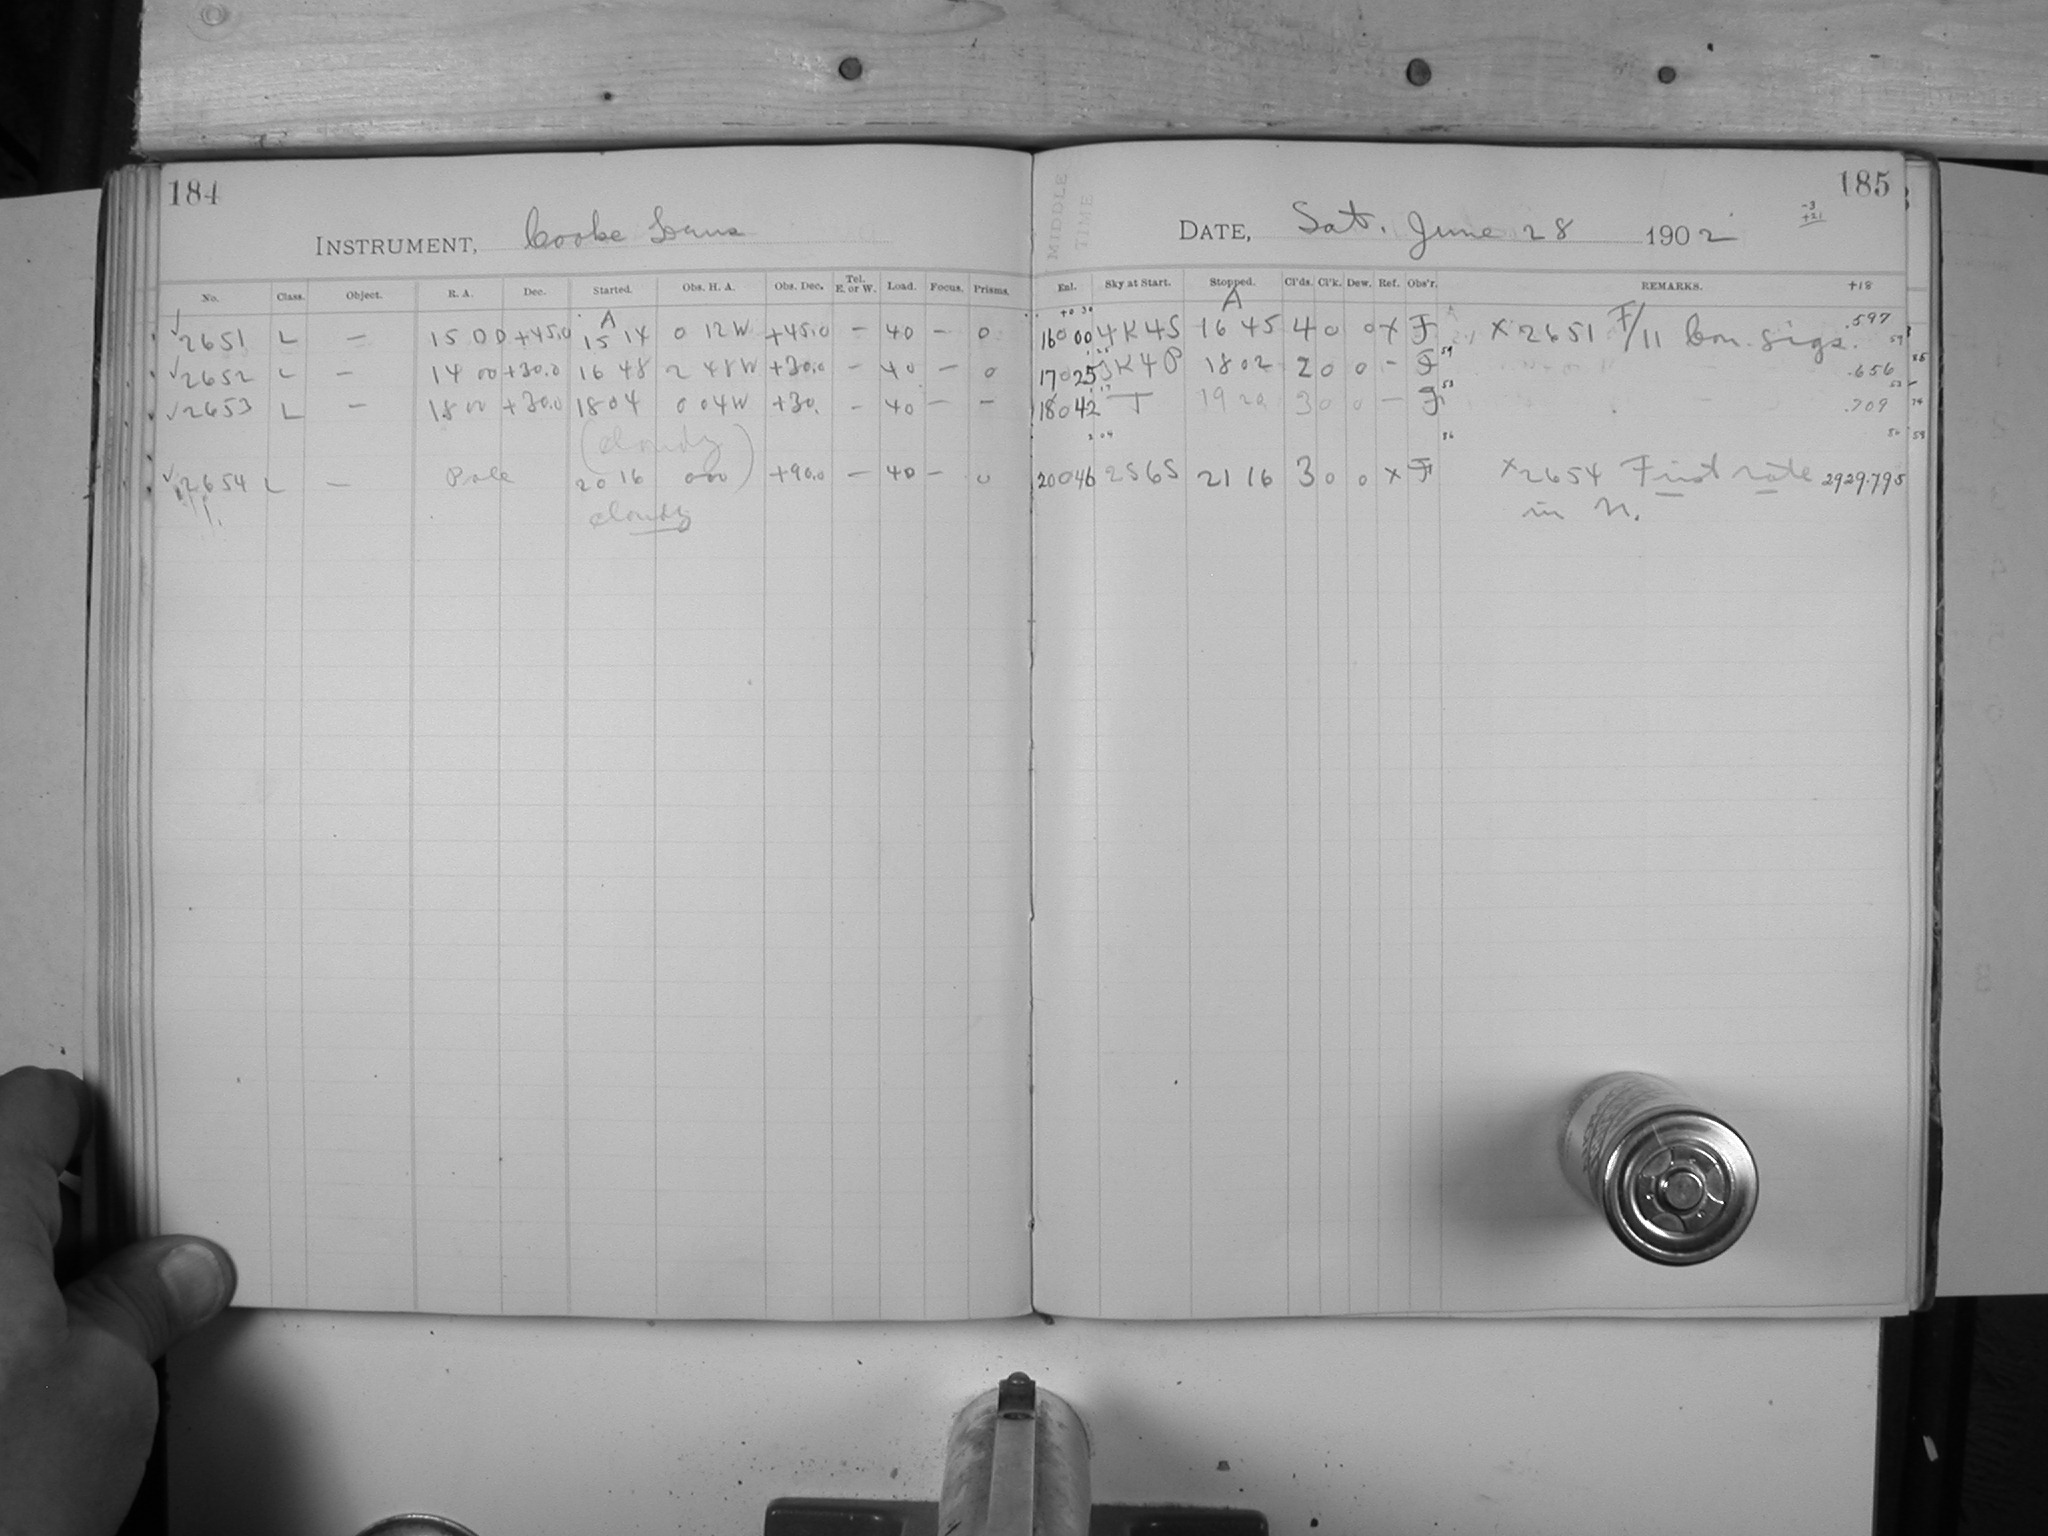 184
INSTRUMENT, Cooke Lens
No. Class. Object. R. A. Dec. Started. Obs. H. A. Obs. Dec. Tel. E. or W. Load. Focus. Prisms.
A
✓ 2651 L — 15 00 +45.0 15 14 0 12 W +45.0 — 40 — 0
✓ 2652 L — 14 00 +30.0 16 48 2 48 W +30.0 — 40 — 0
✓ 2653 L — 18 00 +30.0 18 04 0 04 W +30. — 40 — —
(cloudy)
✓ 2654 L — Pole 20 16 0 00 +90.0 — 40 — 0
cloudy
185
MIDDLE TIME
DATE, Sat. June 28 1902
-3
+21
+18
Enl. Sky at Start. Stopped. Cl'ds. Cl'k. Dew. Ref. Obs'r. REMARKS.
A
16 0 00 4K4S 16 45 4 0 0 x F x 2651 F/11 Con. sigs. .597
17 0 25 3K4P 18 02 2 0 0 — F .656
18 0 42 T 19 20 3 0 0 — F .709
20 0 46 2S6S 21 16 3 0 0 x F x 2654 First rate 2929.795
in N.